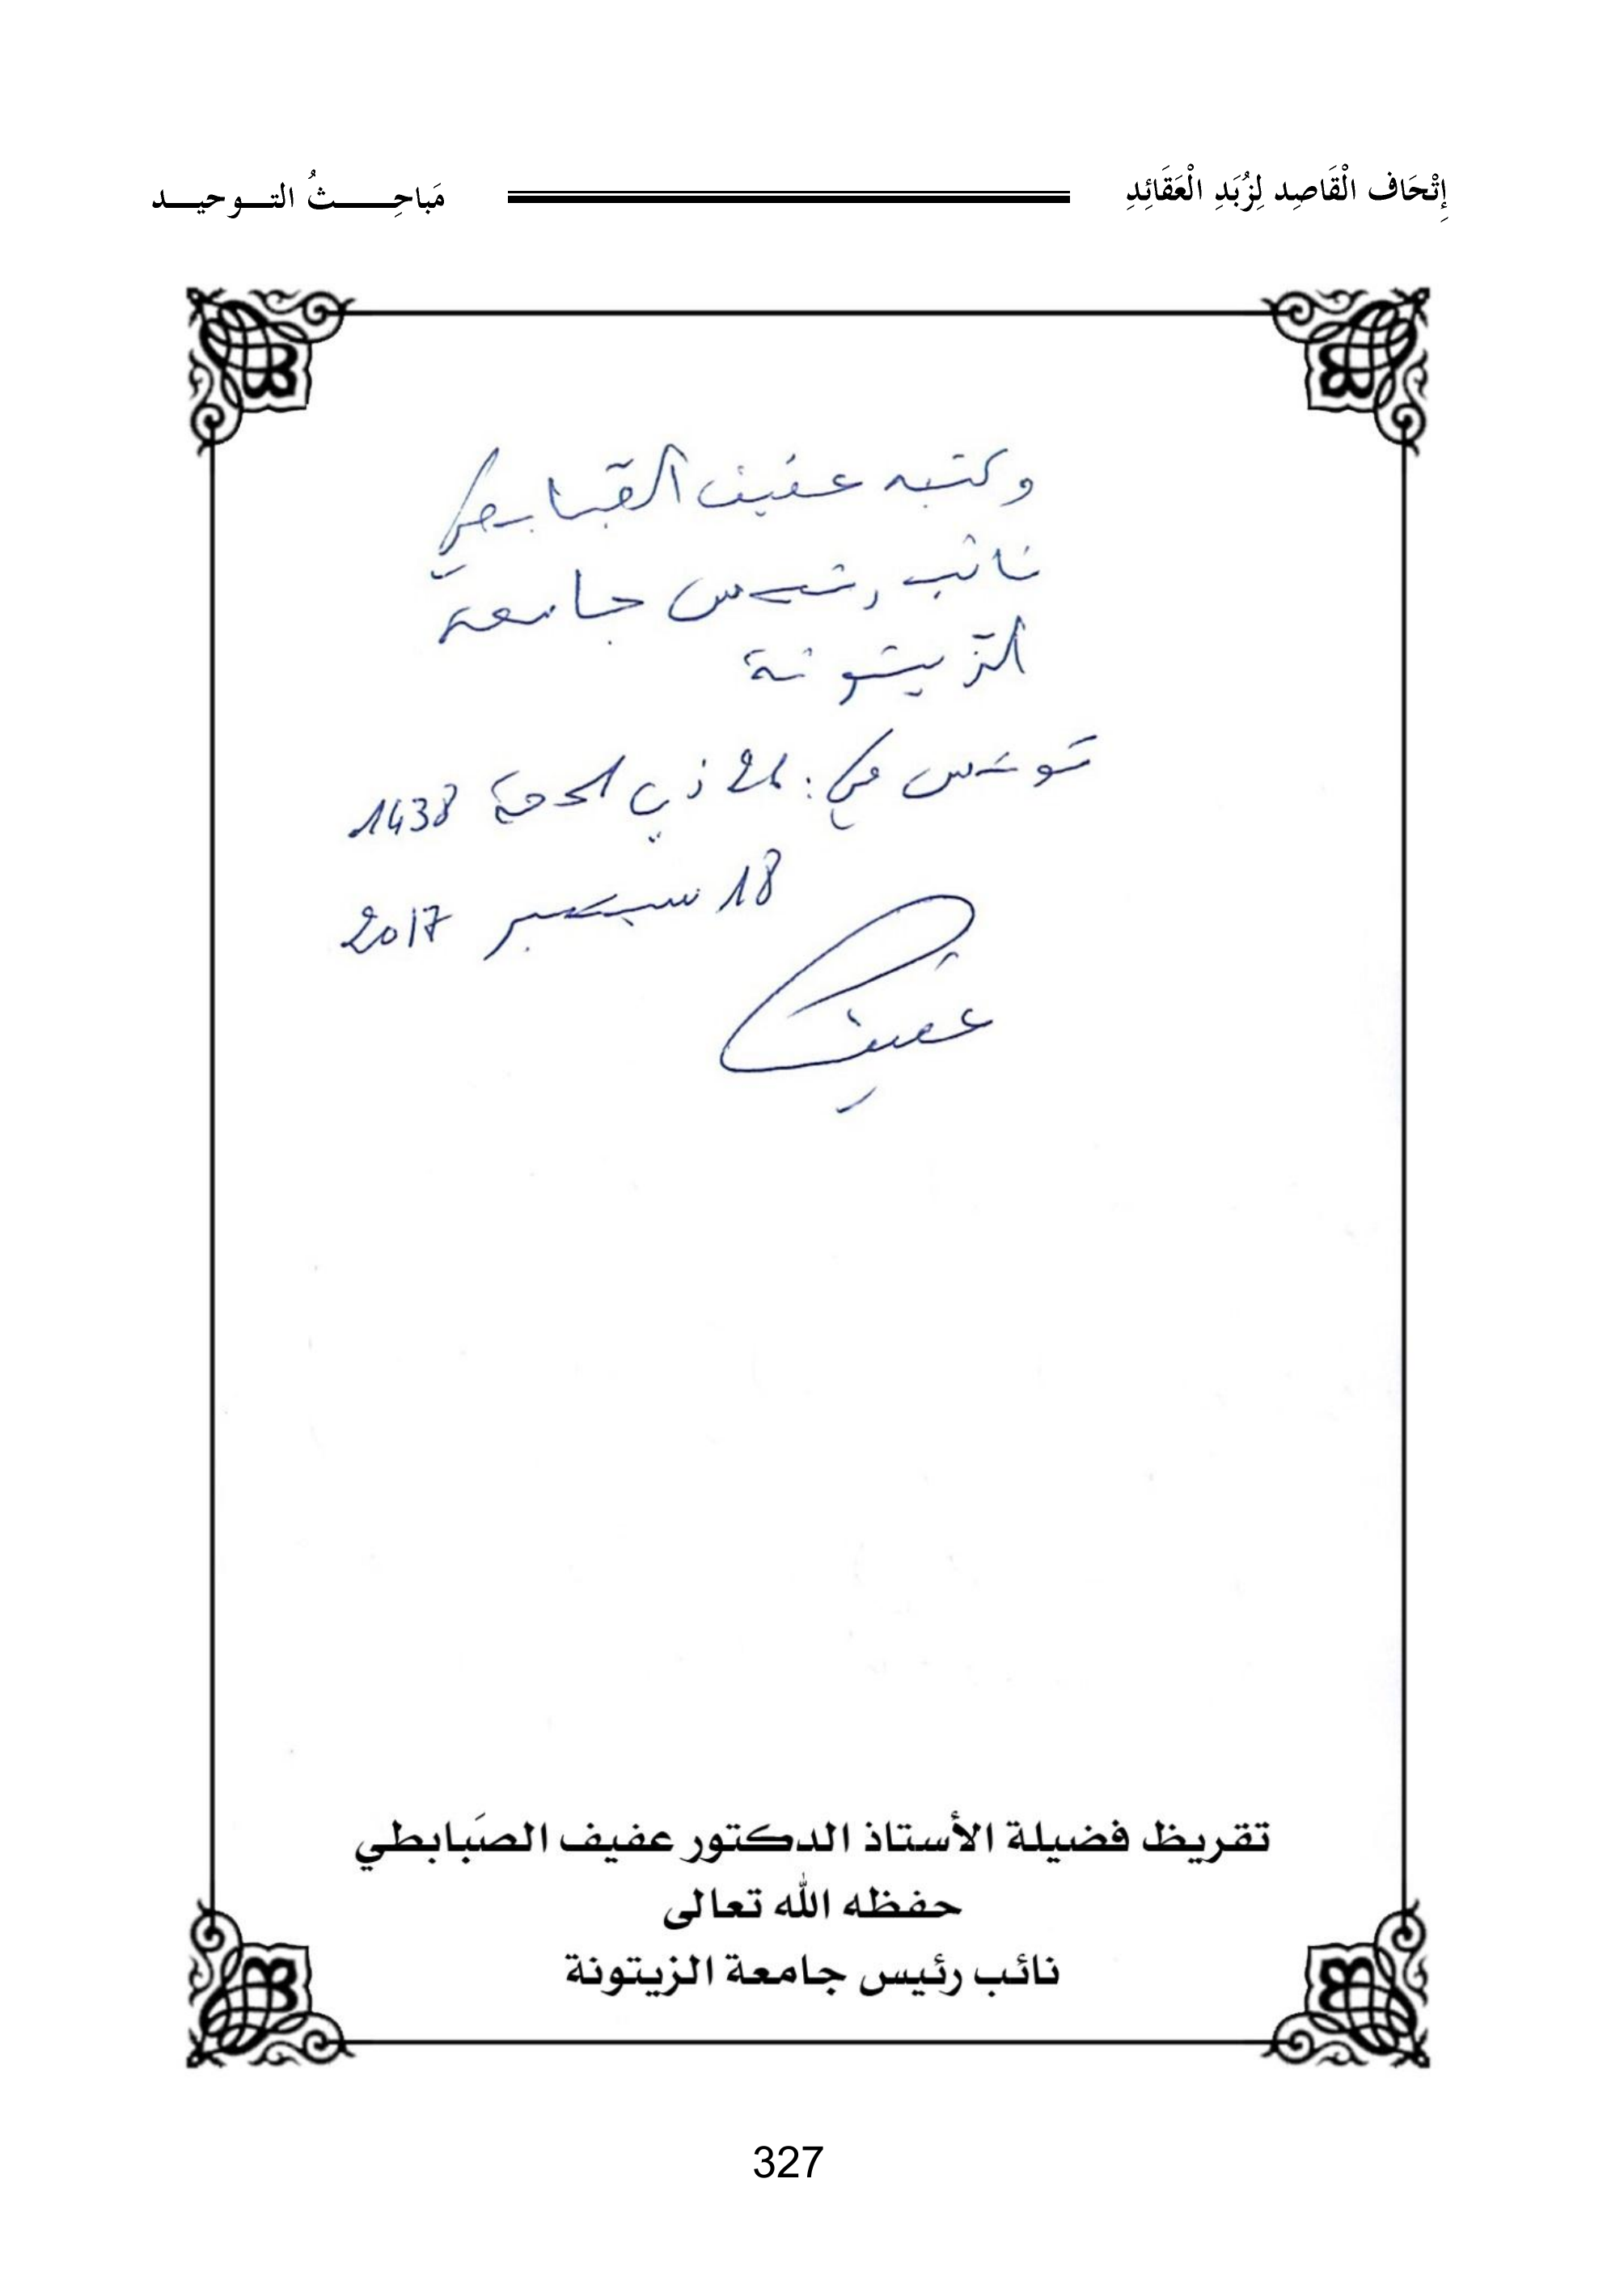 إِتْحَاف الْقَاصِد لِزُبَدِ الْعَقَائِدِ
مَباحِثُ التوحيد
وكتبه عفيف الصّبابطي
نائب رئيس جامعة
الزّيتونة
تونس في: ذي الحجة 1438
18 سبتمبر 2017
عفيف
تقريظ فضيلة الأستاذ الدكتور عفيف الصَبابطي
حفظه الله تعالى
نائب رئيس جامعة الزيتونة
327